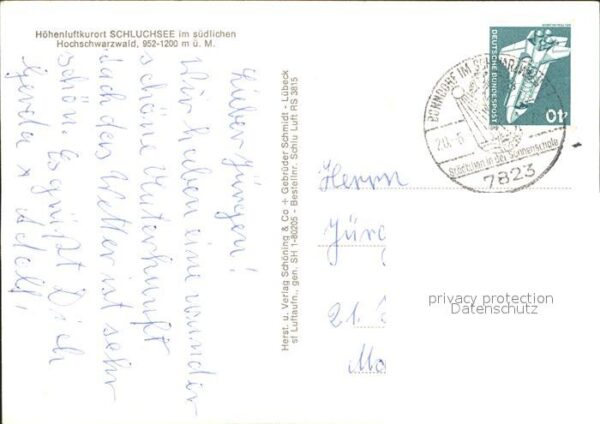 Höhenluftkurort SCHLUCHSEE im südlichen
Hochschwarzwald, 952-1200 m ü. M.
Lieber Jürgen!
Wir haben eine wunder
schöne Unterkunft
auch das Wetter ist sehr
schön. Es grüßt Dich
Gerda + Adolf.
Herst. u. Verlag Schöning & Co + Gebrüder Schmidt - Lübeck
sf Luftaufn., gen. SH 1-80205 - Bestellnr. Schlu Luft RS 3815
DEUTSCHE BUNDESPOST
40
BONNDORF IM SCHWARZWALD
Städtchen in der Sonnenschale
7823
Herrn
Jürg
21.
Mo
privacy protection
Datenschutz